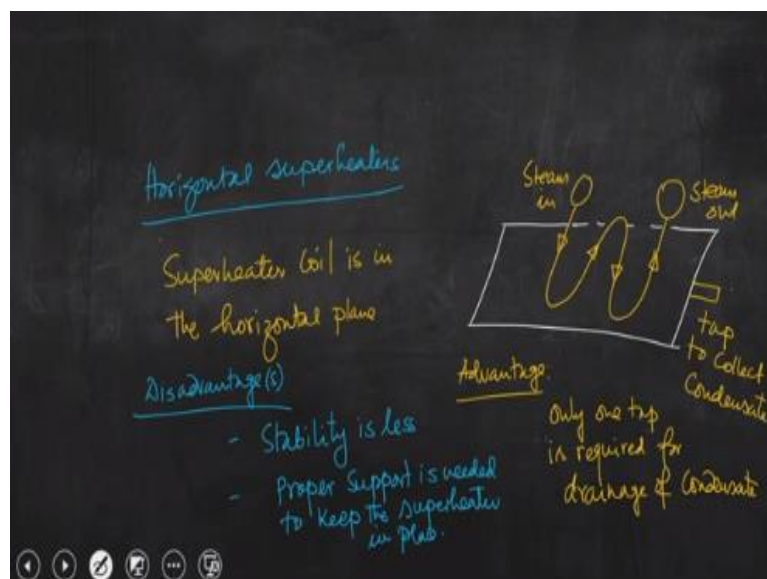 Horizontal superheaters
Superheater Coil is in
the horizontal plane
Disadvantage(s)
- Stability is less
- Proper Support is needed
to keep the superheater
in place.
Steam
in
Steam
out
tap
to Collect
Condensate
Advantage.
Only one tap
is required for
drainage of Condensate